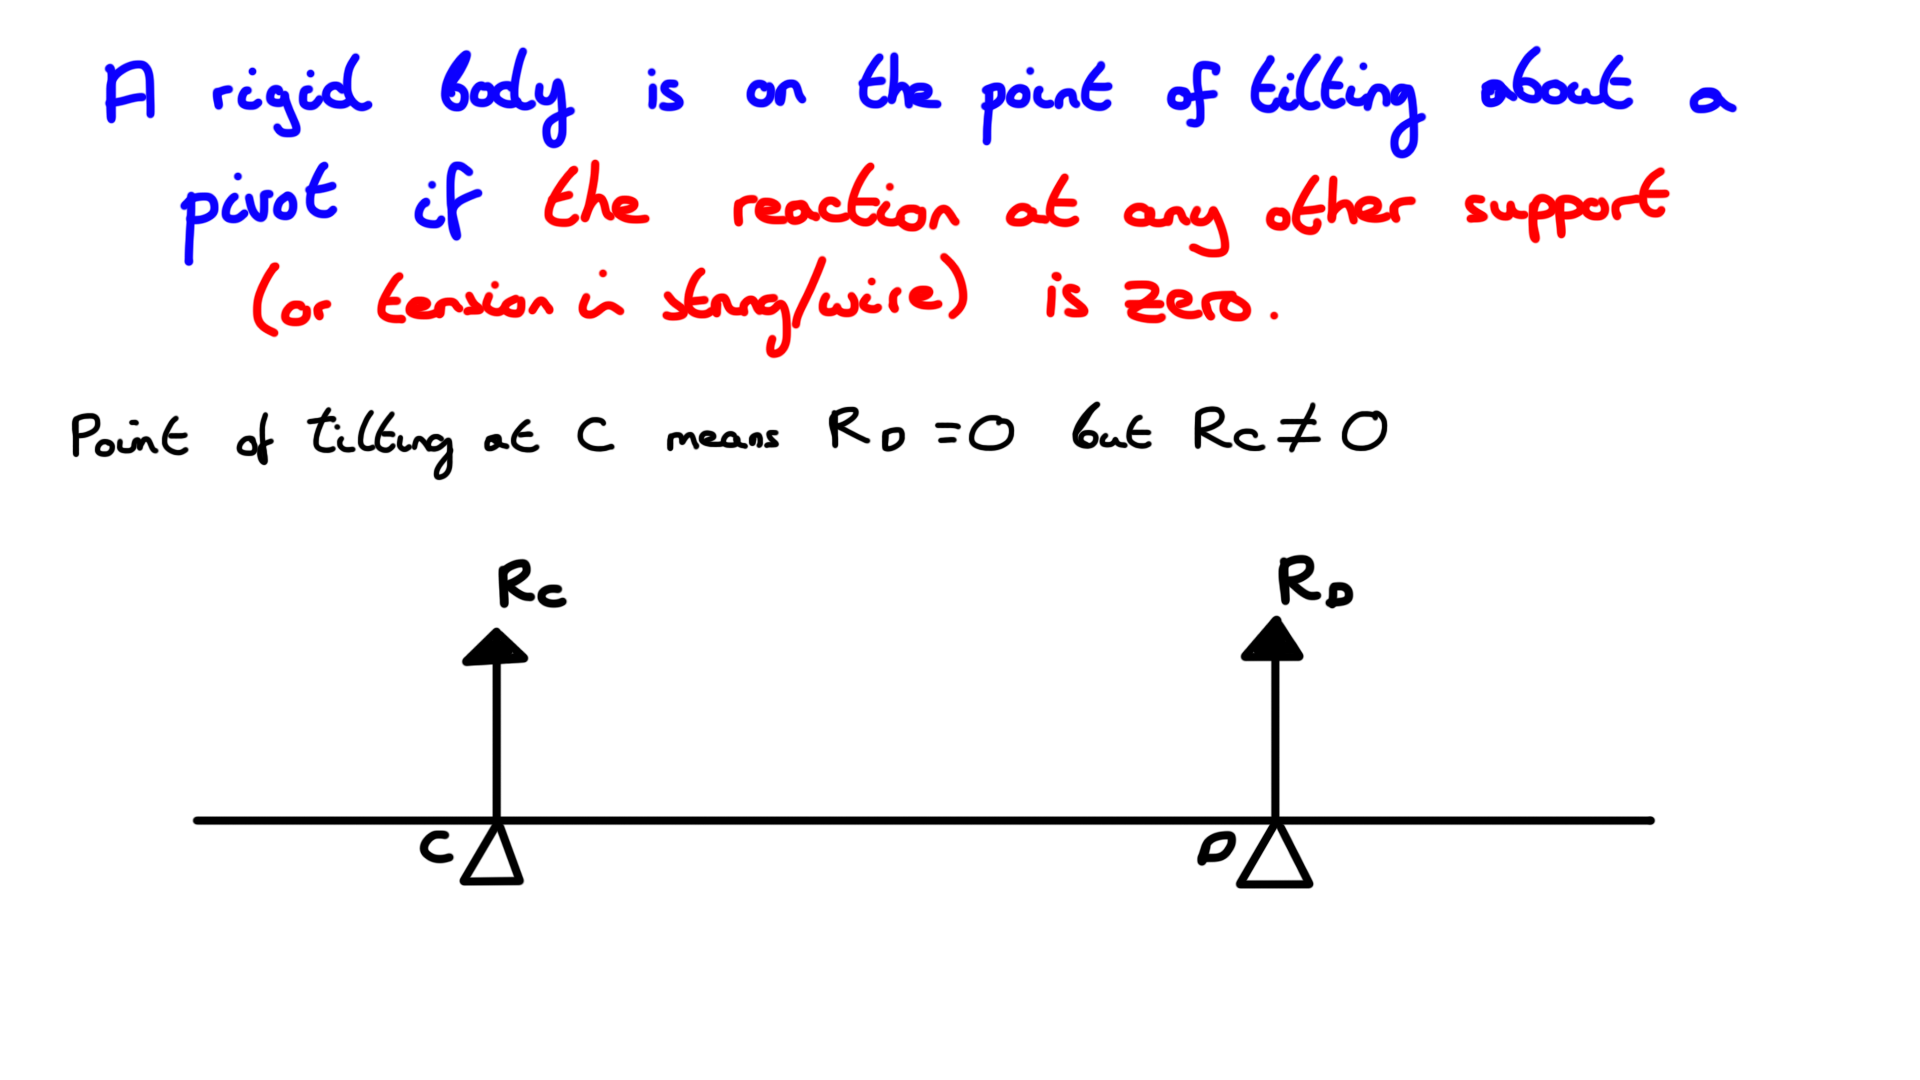 A rigid body is on the point of tilting about a
pivot if the reaction at any other support
(or tension in string/wire) is zero.
Point of tilting at C means R_D = 0 but R_C ≠ 0
R_C R_D
C D